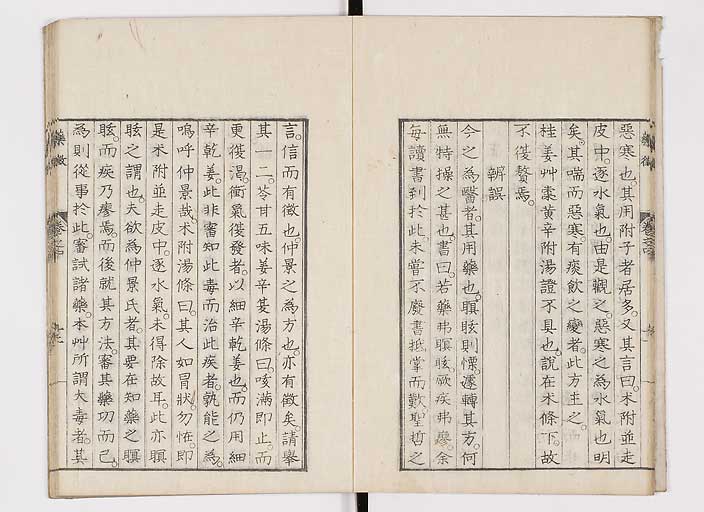 惡寒也。其用附子者居多。又其言曰。朮附並走
皮中。逐水氣也。由是觀之。惡寒之為水氣也明
矣。其喘而惡寒。有痰飲之變者。此方主之。
桂姜艸棗黃辛附湯證不具也。說在朮條下。故
不復贅焉。
辨誤
今之為醫者。其用藥也。瞑眩則慄。遽轉其方。何
無特操之甚也。書曰。若藥弗瞑眩。厥疾弗瘳。余
每讀書到於此。未嘗不廢書抵掌而歎。聖哲之
言。信而有徵也。仲景之為方也。亦有徵矣。請舉
其一二。苓甘五味姜辛夏湯條曰。咳滿即止。而
更復渴。衝氣復發者。以細辛乾姜也。而仍用細
辛乾姜。此非審知此毒而治此疾者。孰能之為。
嗚呼仲景哉。朮附湯條曰。其人如冒狀。勿怪。即
是朮附並走皮中。逐水氣。未得除故耳。此亦瞑
眩之謂也。夫欲為仲景氏者。其要在知藥之瞑
眩。而疾乃瘳焉。而後就其方法。審其藥功而已。
為則從事於此。審試諸藥。本艸所謂大毒者。其
藥徵
藥徵